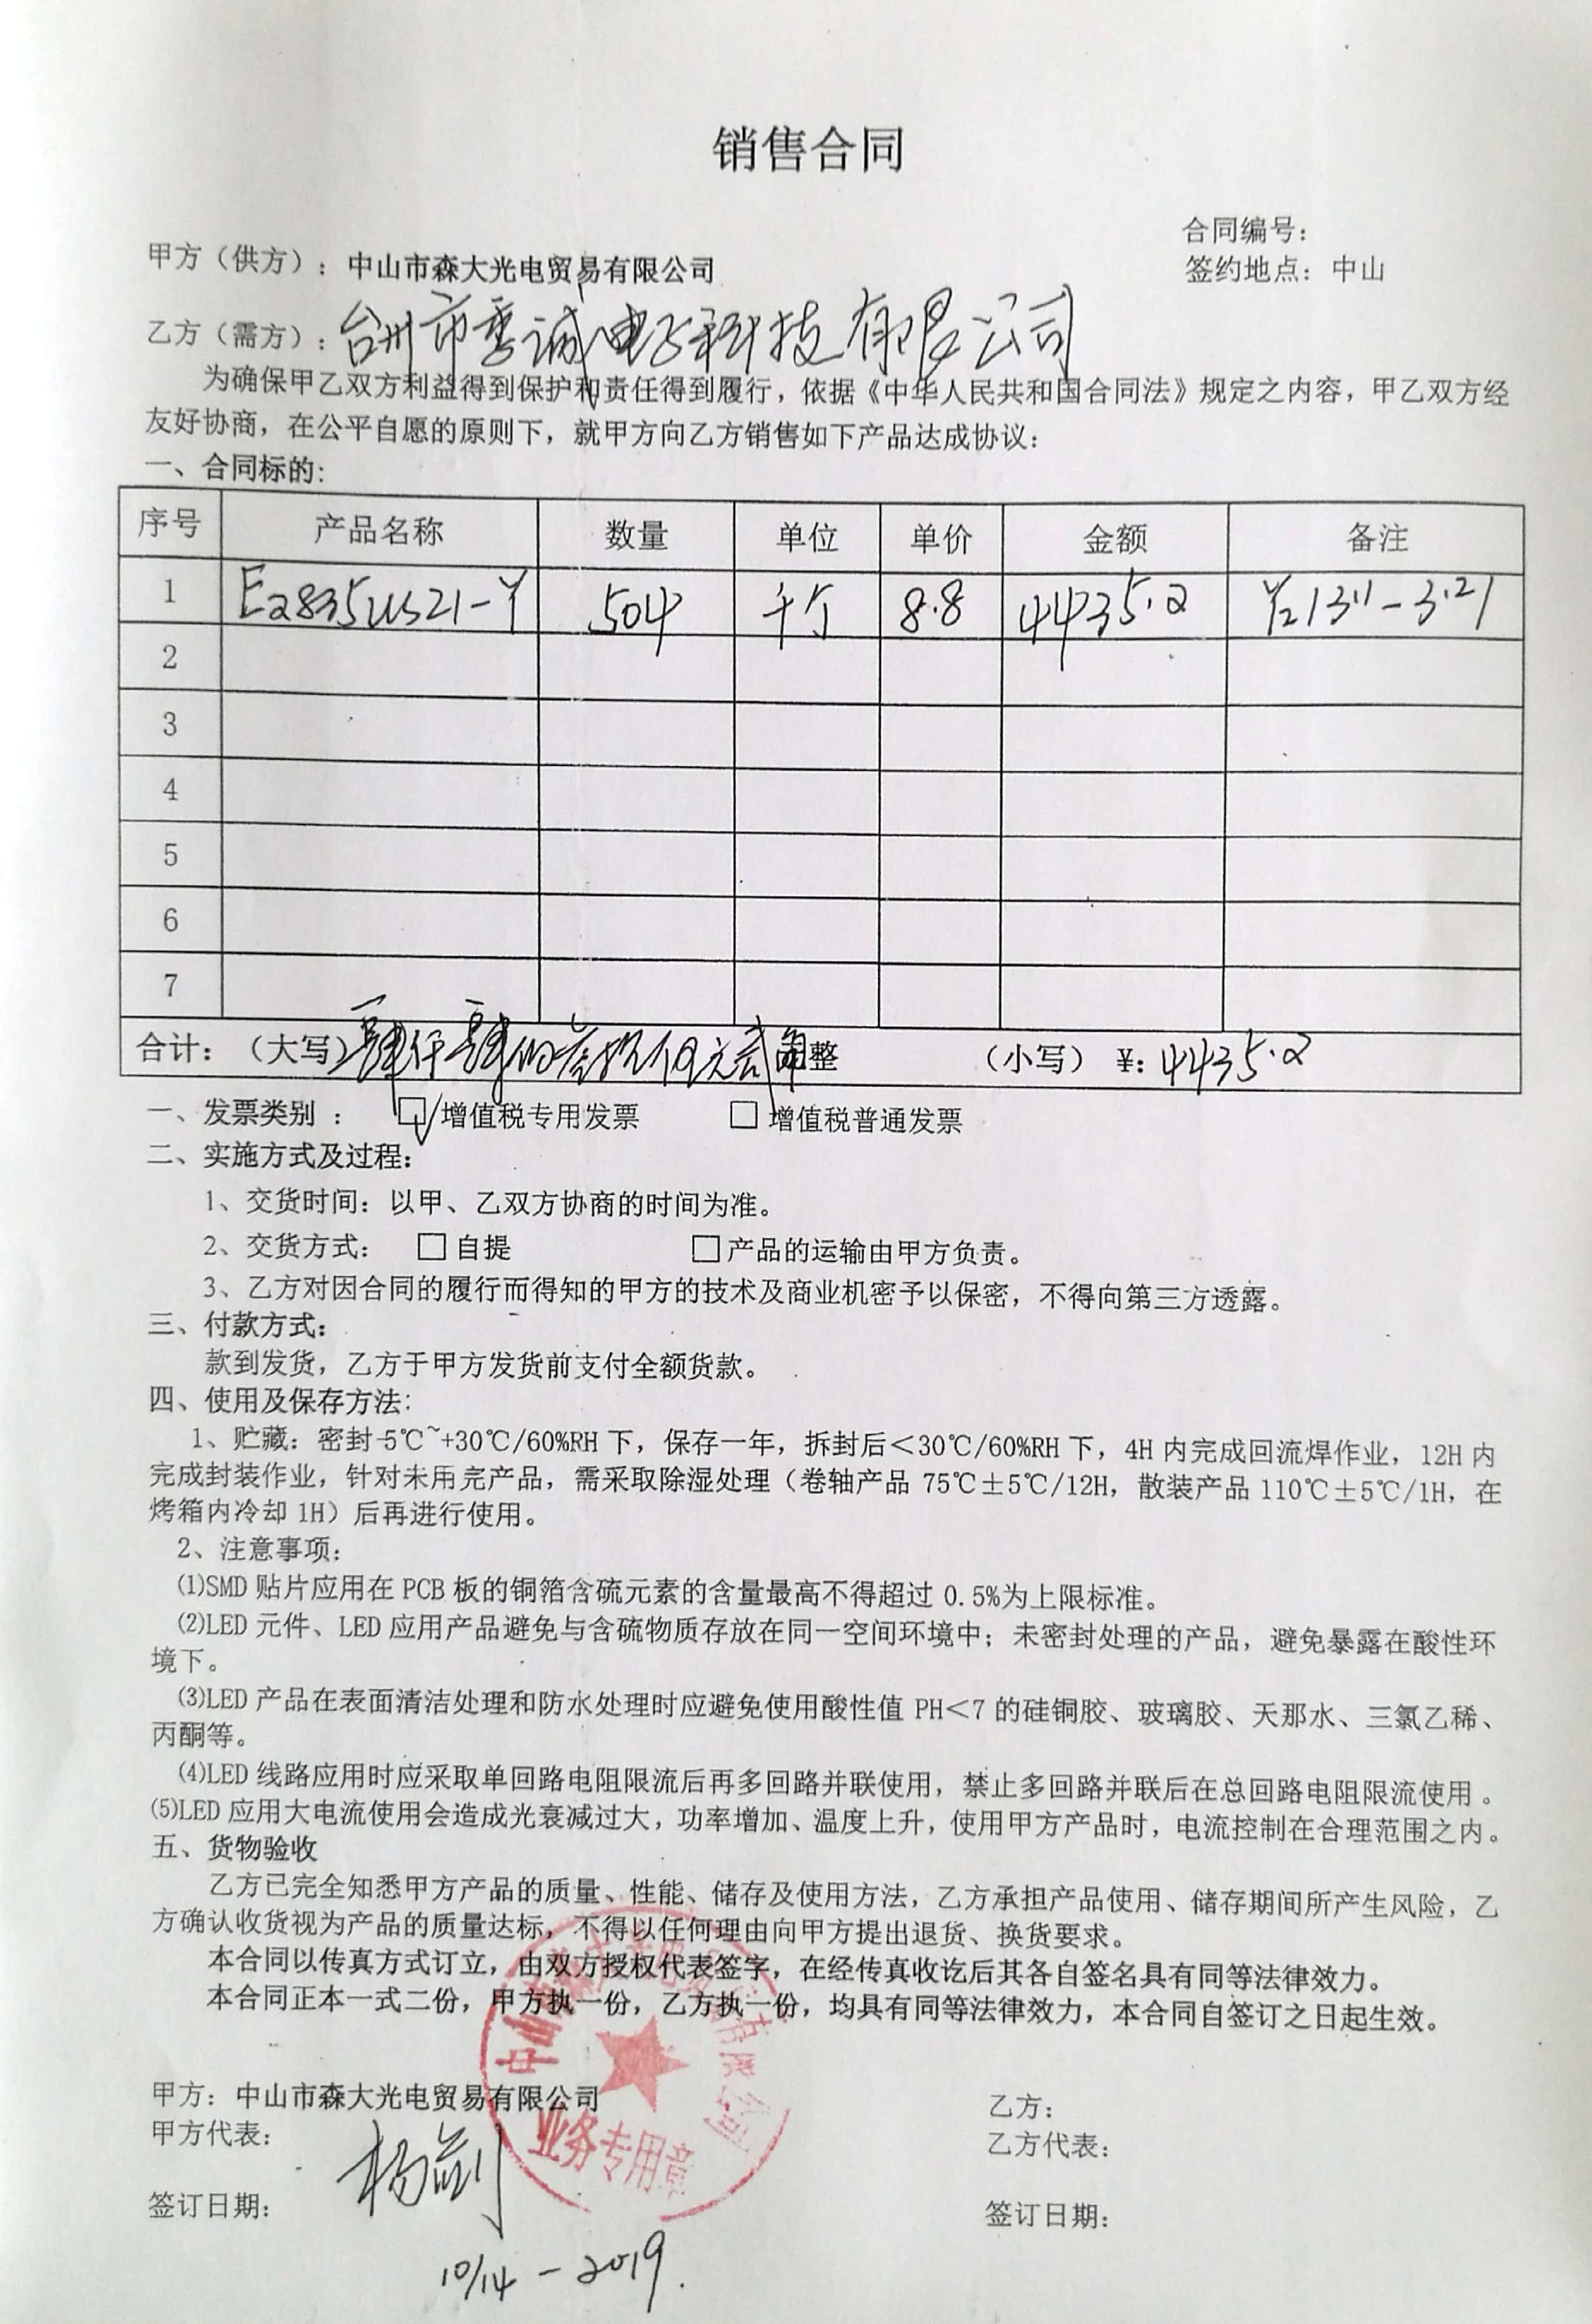 销售合同
合同编号：
甲方（供方）：中山市森大光电贸易有限公司
签约地点：中山
乙方（需方）：台州市季诚电子科技有限公司
为确保甲乙双方利益得到保护和责任得到履行，依据《中华人民共和国合同法》规定之内容，甲乙双方经
友好协商，在公平自愿的原则下，就甲方向乙方销售如下产品达成协议：
一、合同标的：
序号 产品名称 数量 单位 单价 金额 备注
1 504 8.8 4435.2
2
3
4
5
6
7
合计：（大写）肆仟肆佰叁拾伍元贰角整 （小写）¥：4435.2
一、发票类别： ☑增值税专用发票 □增值税普通发票
二、实施方式及过程：
1、交货时间：以甲、乙双方协商的时间为准。
2、交货方式： □自提 □产品的运输由甲方负责。
3、乙方对因合同的履行而得知的甲方的技术及商业机密予以保密，不得向第三方透露。
三、付款方式：
款到发货，乙方于甲方发货前支付全额货款。
四、使用及保存方法：
1、贮藏：密封-5℃~+30℃/60%RH 下，保存一年，拆封后＜30℃/60%RH 下，4H 内完成回流焊作业，12H 内
完成封装作业，针对未用完产品，需采取除湿处理（卷轴产品 75℃±5℃/12H，散装产品 110℃±5℃/1H，在
烤箱内冷却 1H）后再进行使用。
2、注意事项：
⑴SMD 贴片应用在 PCB 板的铜箔含硫元素的含量最高不得超过 0.5%为上限标准。
⑵LED 元件、LED 应用产品避免与含硫物质存放在同一空间环境中；未密封处理的产品，避免暴露在酸性环
境下。
⑶LED 产品在表面清洁处理和防水处理时应避免使用酸性值 PH＜7 的硅铜胶、玻璃胶、天那水、三氯乙稀、
丙酮等。
⑷LED 线路应用时应采取单回路电阻限流后再多回路并联使用，禁止多回路并联后在总回路电阻限流使用。
⑸LED 应用大电流使用会造成光衰减过大，功率增加、温度上升，使用甲方产品时，电流控制在合理范围之内。
五、货物验收
乙方已完全知悉甲方产品的质量、性能、储存及使用方法，乙方承担产品使用、储存期间所产生风险，乙
方确认收货视为产品的质量达标，不得以任何理由向甲方提出退货、换货要求。
本合同以传真方式订立，由双方授权代表签字，在经传真收讫后其各自签名具有同等法律效力。
本合同正本一式二份，甲方执一份，乙方执一份，均具有同等法律效力，本合同自签订之日起生效。
甲方：中山市森大光电贸易有限公司
乙方：
甲方代表：杨剑
乙方代表：
业务专用章
签订日期：
签订日期：
10/14-2019.